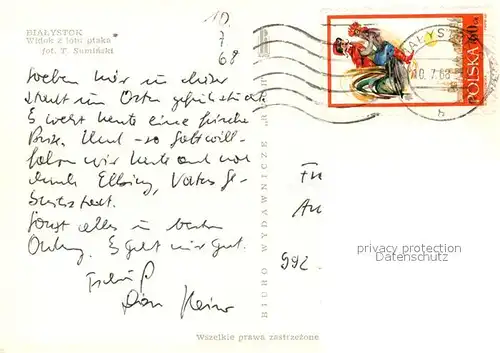 BIAŁYSTOK
Widok z lotu ptaka
fot. T. Sumiński
10
7
68
Soeben haben wir in dieser
Stadt im Osten gefrühstückt.
Es weht heute eine frische
Brise. Und - so Gott will -
fahren wir heute auch noch
durch Elbing, Vaters Ge-
burtsstadt.
Sonst alles in bester
Ordnung. Es geht mir gut.
Tschüß
Dein Heiner
BIURO WYDAWNICZE „R
BIAŁYST
10. 7. 68
POLSKA 60 gr
Fr
An
992
privacy protection
Datenschutz
Wszelkie prawa zastrzeżone